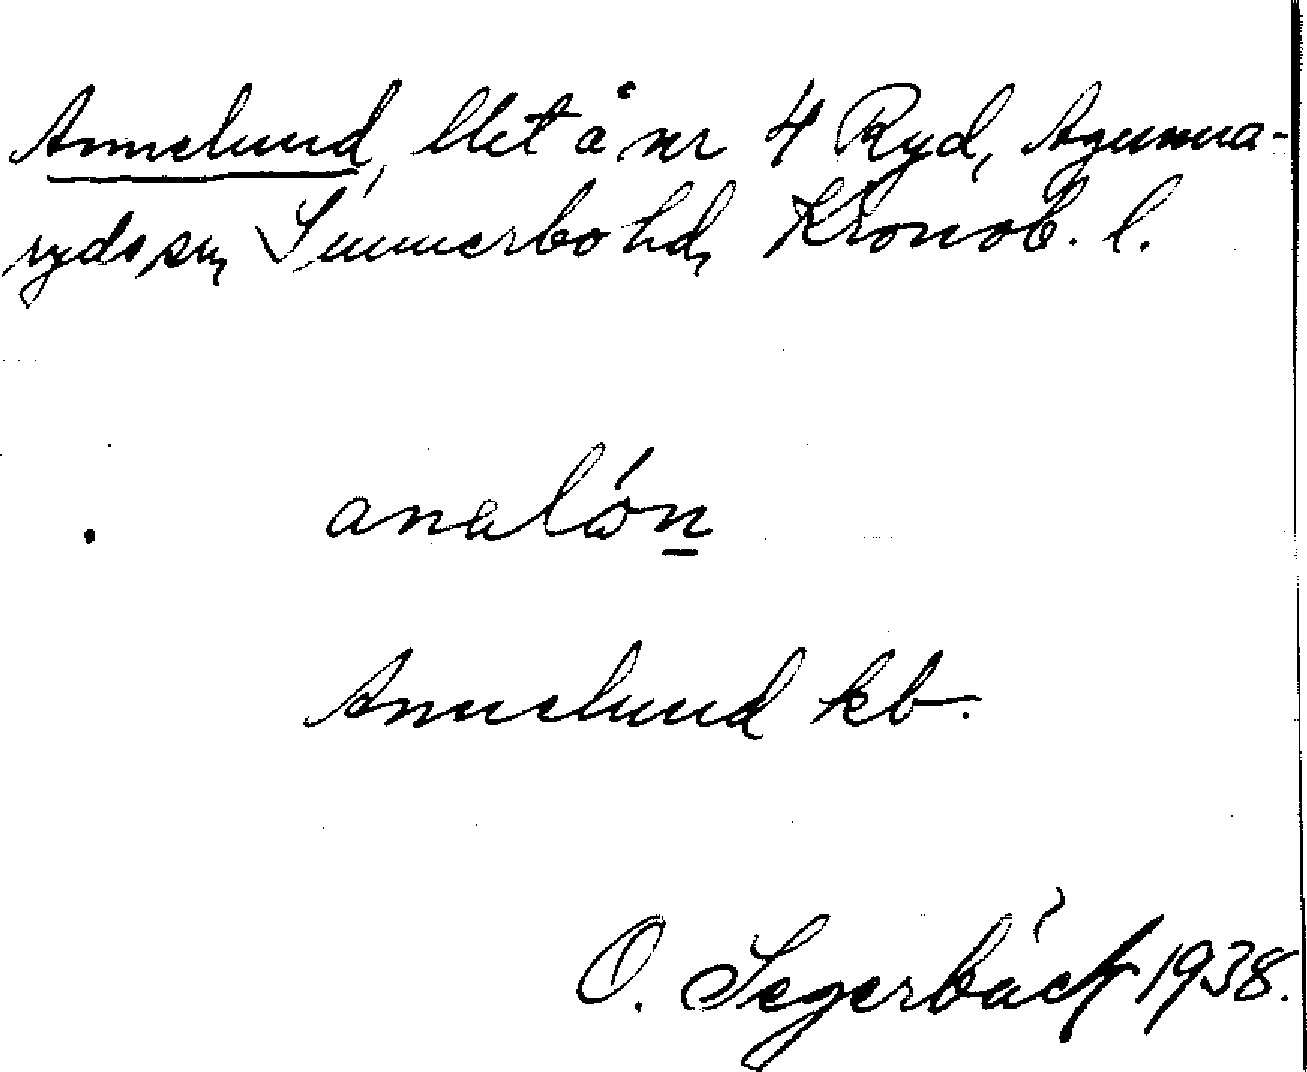 Annelund, lht å nr 4 Ryd, Agunna-
ryds sn, Sunnerbo hd, Kronob. l.
analón
Annelund kb.
O. Segerbäck 1938.